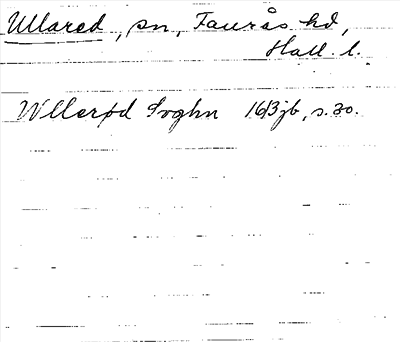 Ullared, sn, Faurås hd,
Hall. l.
Wllerød Soghn 16/3 jb, s. 30.